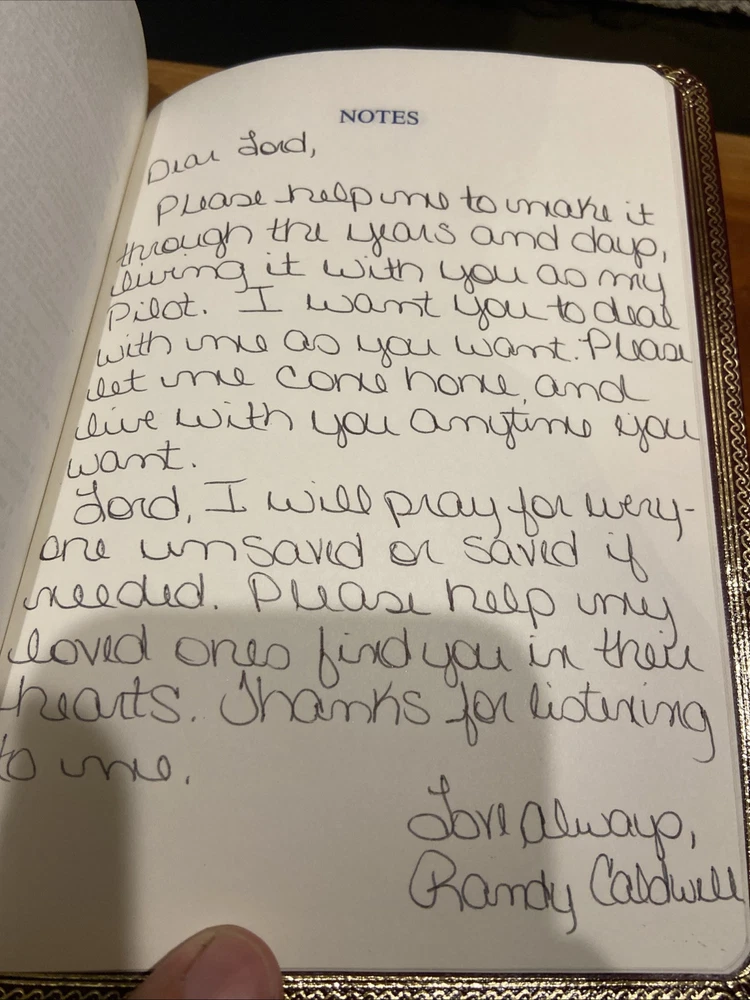 NOTES
Dear Lord,
Please help me to make it
through the years and days,
living it with you as my
Pilot. I want you to deal
with me as you want. Please
let me come home, and
live with you anytime you
want.
Lord, I will pray for every-
one unsaved or saved if
needed. Please help my
loved ones find you in their
hearts. Thanks for listening
to me.
Love always,
Randy Caldwell